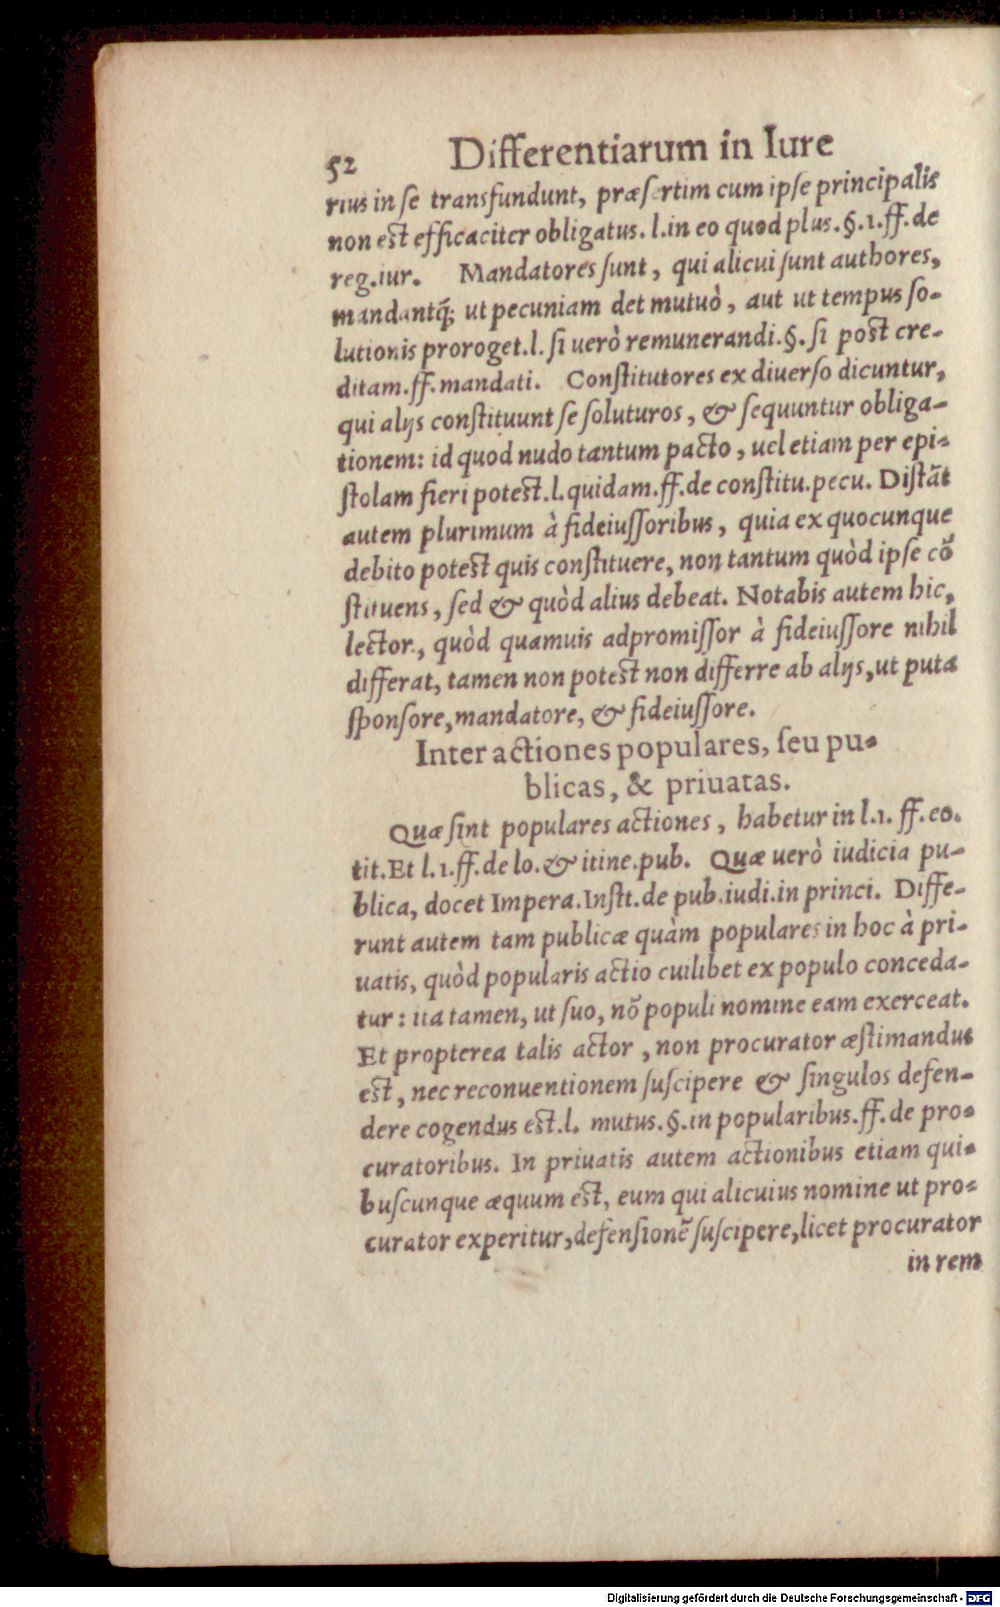 52 Differentiarum in Iure
rius in se transfundunt, præsertim cum ipse principalis
non est efficaciter obligatus. l.in eo quod plus.§.1.ff.de
reg.iur. Mandatores sunt, qui alicui sunt authores,
mandantq́; ut pecuniam det mutuò, aut ut tempus so-
lutionis proroget.l. si uerò remunerandi.§. si post cre-
ditam.ff.mandati. Constitutores ex diuerso dicuntur,
qui alijs constituunt se soluturos, & sequuntur obliga-
tionem: id quod nudo tantum pacto, uel etiam per epi-
stolam fieri potest.l.quidam.ff.de constitu.pecu. Distāt
autem plurimum à fideiussoribus, quia ex quocunque
debito potest quis constituere, non tantum quòd ipse cō
stituens, sed & quòd alius debeat. Notabis autem hic,
lector, quòd quamuis adpromissor à fideiussore nihil
differat, tamen non potest non differre ab alijs, ut puta
sponsore, mandatore, & fideiussore.
Inter actiones populares, seu pu-
blicas, & priuatas.
Quæ sint populares actiones, habetur in l.1. ff.eo.
tit.Et l.1.ff.de lo.& itine.pub. Quæ uerò iudicia pu-
blica, docet Impera.Instit.de pub.iudi.in princi. Diffe-
runt autem tam publicæ quàm populares in hoc à pri-
uatis, quòd popularis actio cuilibet ex populo conceda-
tur: ita tamen, ut suo, nō populi nomine eam exerceat.
Et propterea talis actor, non procurator æstimandus
est, nec reconuentionem suscipere & singulos defen-
dere cogendus est.l. mutus.§.in popularibus.ff.de pro-
curatoribus. In priuatis autem actionibus etiam qui-
buscunque æquum est, eum qui alicuius nomine ut pro-
curator experitur, defensionē suscipere, licet procurator
in rem
Digitalisierung gefördert durch die Deutsche Forschungsgemeinschaft - DFG